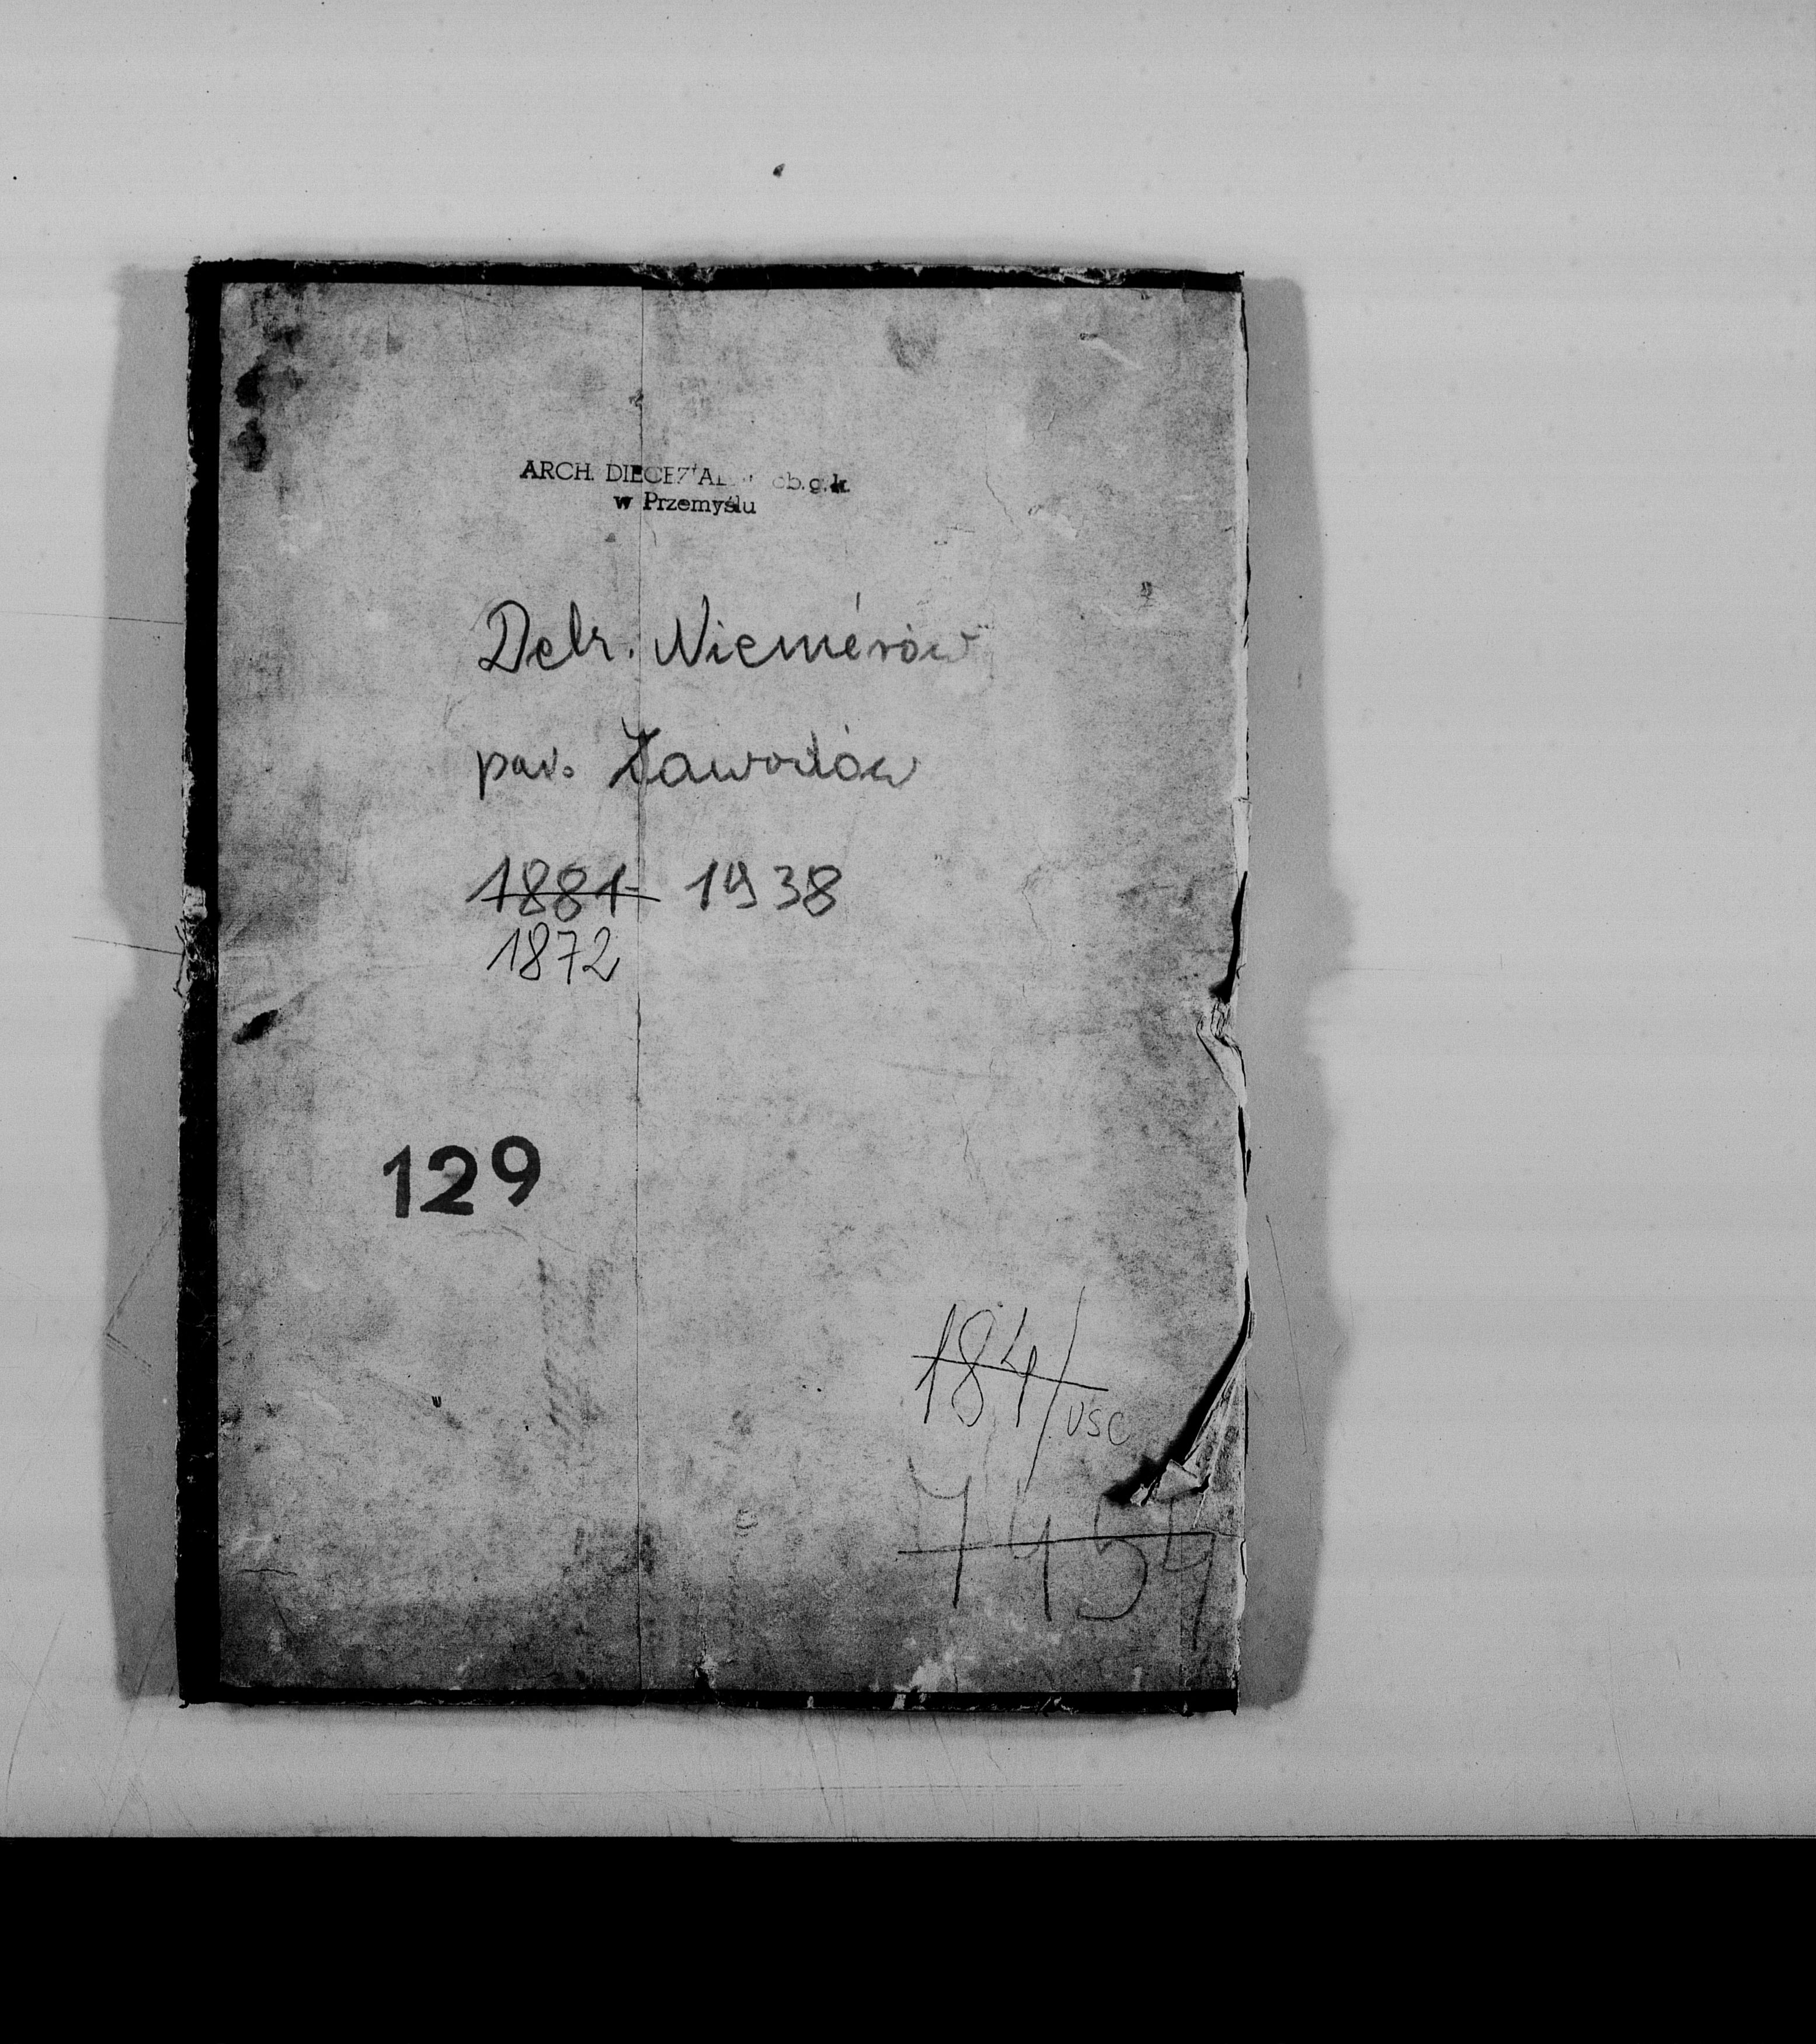 ARCH. DIECEZJAL ob.g.k.
w Przemyślu
Dekr. Niemirów
par. Zawadów
1881- 1938
1872
129
184/USC
7454